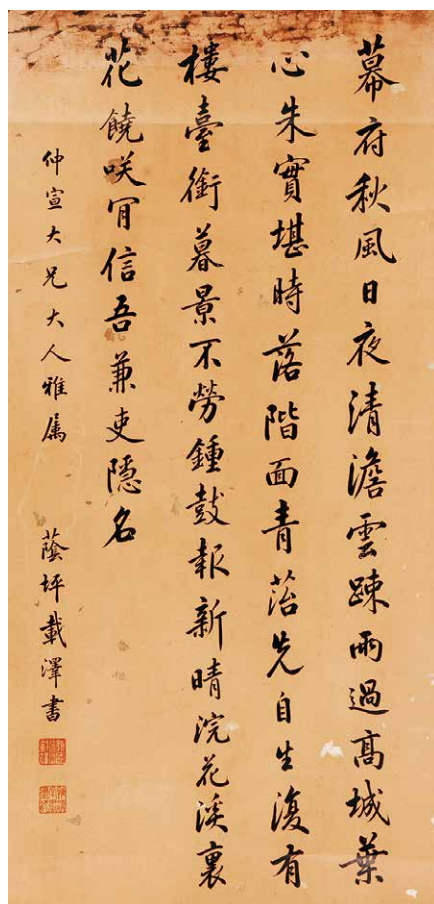 幕府秋風日夜清澹雲踈雨過高城葉
心朱實堪時落階面青苔先自生復有
樓臺銜暮景不勞鍾鼓報新晴浣花溪裏
花饒咲肎信吾兼吏隱名
仲宣大兄大人雅属 蔭坪載澤書